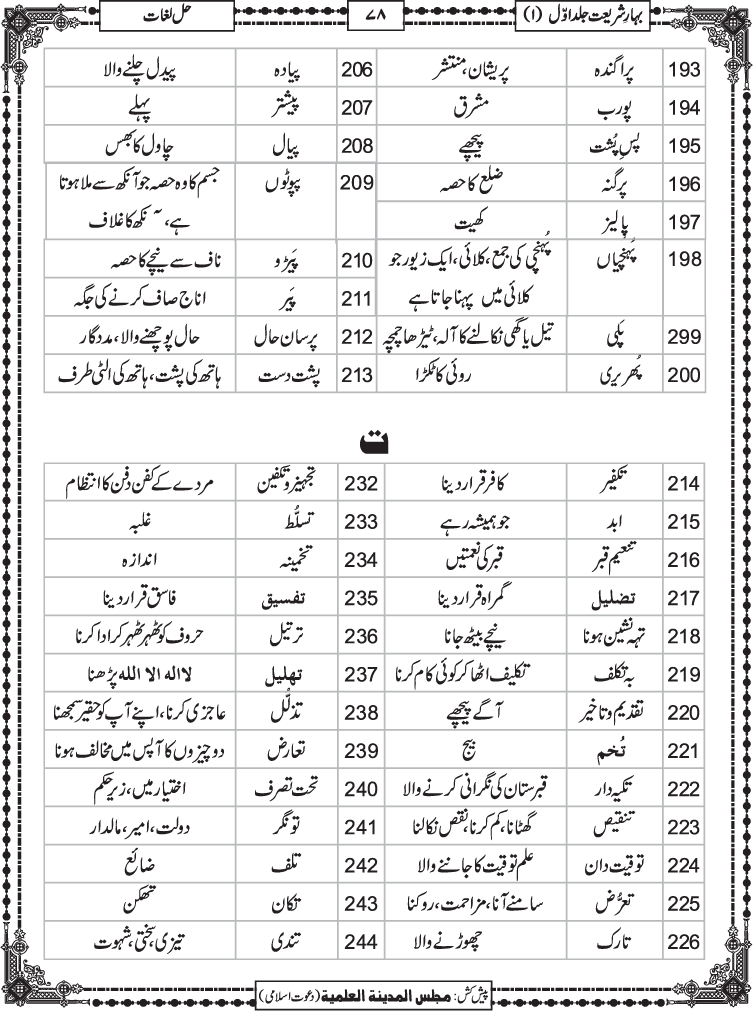 بہارِ شریعت جلد اوّل (۱) ۷۸ حل لغات
193 پراگندہ پریشان، منتشر 206 پیادہ پیدل چلنے والا
194 پورب مشرق 207 پیشتر پہلے
195 پسِ پُشت پیچھے 208 پیال چاول کا بھس
196 پرگنہ ضلع کا حصہ 209 پپوٹوں جسم کا وہ حصہ جو آنکھ سے ملا ہوتا
197 پالیز کھیت ہے، آنکھ کا غلاف
198 پہنچیاں پُہنچی کی جمع، کلائی، ایک زیور جو 210 پَیڑو ناف سے نیچے کا حصہ
کلائی میں پہنا جاتا ہے 211 پَیر اناج صاف کرنے کی جگہ
299 پلی تیل یا گھی نکالنے کا آلہ، ٹیڑھا چمچہ 212 پرسان حال حال پوچھنے والا، مددگار
200 پُھریری روئی کا ٹکڑا 213 پشت دست ہاتھ کی پشت، ہاتھ کی الٹی طرف
ت
214 تکفیر کافر قرار دینا 232 تجہیز و تکفین مردے کے کفن دفن کا انتظام
215 ابد جو ہمیشہ رہے 233 تسلُّط غلبہ
216 تنعیم قبر قبر کی نعمتیں 234 تخمینہ اندازہ
217 تضلیل گمراہ قرار دینا 235 تفسیق فاسق قرار دینا
218 تہہ نشین ہونا نیچے بیٹھ جانا 236 ترتیل حروف کو ٹھہر ٹھہر کر ادا کرنا
219 بہ تکلف تکلیف اٹھا کر کوئی کام کرنا 237 تهليل لااله الا الله پڑھنا
220 تقدیم و تاخیر آگے پیچھے 238 تذلُّل عاجزی کرنا، اپنے آپ کو حقیر سمجھنا
221 تُخم بیج 239 تعارض دو چیزوں کا آپس میں مخالف ہونا
222 تکیہ دار قبرستان کی نگرانی کرنے والا 240 تحت تصرف اختیار میں، زیرِ حکم
223 تنقیص گھٹانا، کم کرنا، نقص نکالنا 241 تونگر دولت، امیر، مالدار
224 توقیت دان علم توقیت کا جاننے والا 242 تلف ضائع
225 تعرُّض سامنے آنا، مزاحمت، روکنا 243 تکان تھکن
226 تارک چھوڑنے والا 244 تندی تیزی، سختی، شہوت
پیش کش: مجلس المدينة العلمية (دعوت اسلامی)